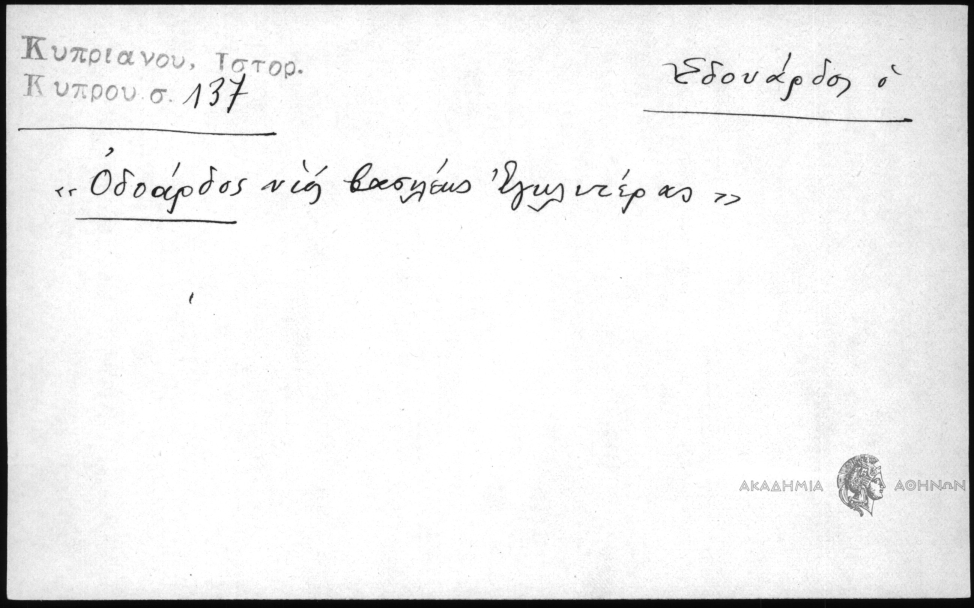 Κυπριανου, Ιστορ.
Κυπρου σ. 137
Ἐδουάρδος ὁ
«Ὀδοάρδος υἱὸς βασιλέως Ἐγκλιτέρας»
ΑΚΑΔΗΜΙΑ ΑΘΗΝΩΝ